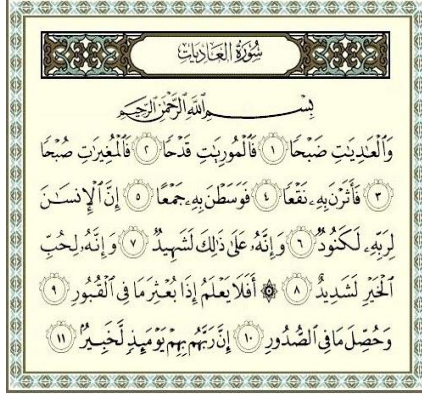 سُورَةُ الْعَادِيَاتِ
بِسْمِ اللَّهِ الرَّحْمَٰنِ الرَّحِيمِ
وَٱلْعَٰدِيَٰتِ ضَبْحًا ١ فَٱلْمُورِيَٰتِ قَدْحًا ٢ فَٱلْمُغِيرَٰتِ صُبْحًا
٣ فَأَثَرْنَ بِهِۦ نَقْعًا ٤ فَوَسَطْنَ بِهِۦ جَمْعًا ٥ إِنَّ ٱلْإِنسَٰنَ
لِرَبِّهِۦ لَكَنُودٌ ٦ وَإِنَّهُۥ عَلَىٰ ذَٰلِكَ لَشَهِيدٌ ٧ وَإِنَّهُۥ لِحُبِّ
ٱلْخَيْرِ لَشَدِيدٌ ٨ ۞ أَفَلَا يَعْلَمُ إِذَا بُعْثِرَ مَا فِى ٱلْقُبُورِ ٩
وَحُصِّلَ مَا فِى ٱلصُّدُورِ ١٠ إِنَّ رَبَّهُم بِهِمْ يَوْمَئِذٍ لَّخَبِيرٌۢ ١١